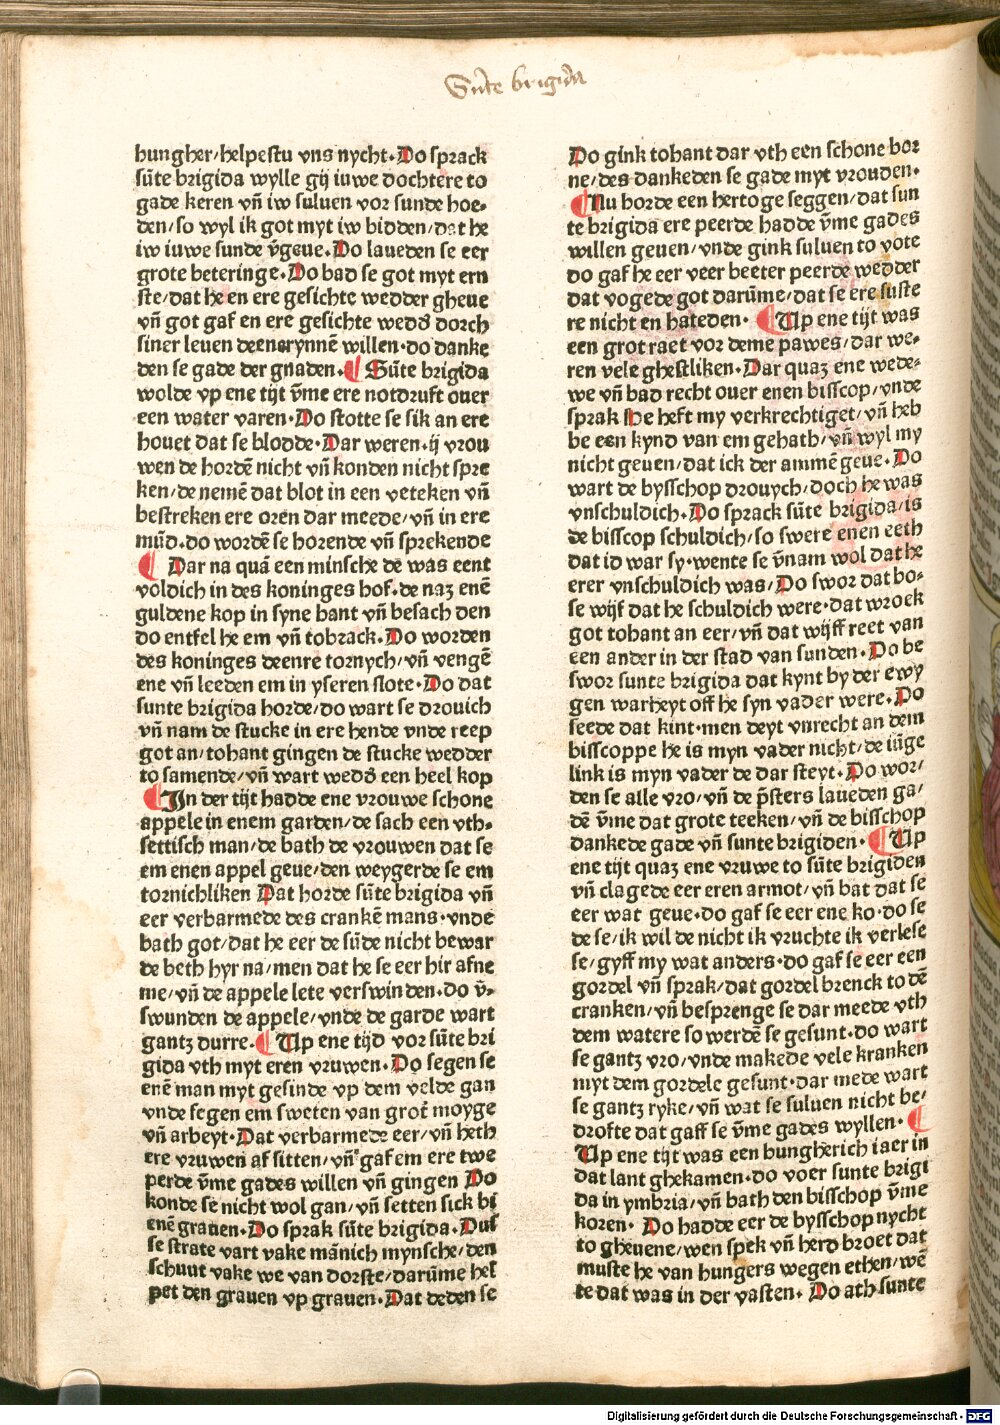 Sũte brigida
hungher/helpestu vns nycht. Do sprack
sũte brigida wylle gij iuwe dochtere to
gade keren vñ iw suluen vor sunde hoe-
den/so wyl ik got myt iw bidden/dat he
iw iuwe sunde v̈geue. Do laueden se eer
grote beteringe. Do bad se got myt ern
ste/dat he en ere gesichte wedder gheue
vñ got gaf en ere gesichte wedđ dorch
siner leuen deenerynnē willen. do danke
den se gade der gnaden. ¶ Sũte brigida
wolde vp ene tijt v̈me ere notdruft ouer
een water varen. Do stotte se sik an ere
houet dat se blodde. Dar weren .ij vrou
wen de hordē nicht vñ konden nicht spre
ken/de nemē dat blot in een veteken vñ
bestreken ere oren dar meede/vñ in ere
mũd. do wordē se horende vñ sprekende
¶ Dar na quã een minsche de was eent
voldich in des koninges hof. de naʒ enē
guldene kop in syne hant vñ besach den
do entfel he em vñ tobrack. Do worden
des koninges deenre tornych/vñ vengē
ene vñ leeden em in yseren slote. Do dat
sunte brigida horde/do wart se drouich
vñ nam de stucke in ere hende vnde reep
got an/tohant gingen de stucke wedder
to samende/vñ wart wedđ een heel kop
¶ In der tijt hadde ene vrouwe schone
appele in enem garden/de sach een vth-
settisch man/de bath de vrouwen dat se
em enen appel geue/den weygerde se em
tornichliken Dat horde sũte brigida vñ
eer verbarmede des crankē mans. vnde
bath got/dat he eer de sũde nicht bewar
de beth hyr na/men dat he se eer hir afne
me/vñ de appele lete verswinden. do v̈-
swunden de appele/vnde de garde wart
gantʒ durre. ¶ Up ene tijd vor sũte bri
gida vth myt eren vruwen. Do segen se
enē man myt gesinde vp dem velde gan
vnde segen em sweten van grot moyge
vñ arbeyt. Dat verbarmede eer/vñ heth
ere vruwen af sitten/vñ gaf em ere twe
perde v̈me gades willen vñ gingen Do
konde se nicht wol gan/vñ setten sick bi
enē grauen. Do sprak sũte brigida. Dus
se strate vart vake mãnich mynsche/den
schuut vake we van dorste/darũme hel
pet den grauen vp grauen. Dat deden se
Do gink tohant dar vth een schone bor
ne/des dankeden se gade myt vrouden.
¶ Nu horde een hertoge seggen/dat sun
te brigida ere peerde hadde v̈me gades
willen geuen/vnde gink suluen to vote
do gaf he eer veer beeter peerde wedder
dat vogede got darũme/dat se ere suste
re nicht en hateden. ¶ Up ene tijt was
een grot raet vor deme pawes/dar we-
ren vele ghestliken. Dar quaʒ ene wede-
we vñ bad recht ouer enen bisscop/vnde
sprak He heft my verkrechtiget/vñ heb
be een kynd van em gehath/vñ wyl my
nicht geuen/dat ick der ammē geue. Do
wart de bysschop drouych/doch he was
vnschuldich. Do sprack sũte brigida/is
de bisscop schuldich/so swere enen eeth
dat id war sy. wente se v̈nam wol dat he
erer vnschuldich was/Do swor dat bo-
se wijf dat he schuldich were. dat wroek
got tohant an eer/vñ dat wijff reet van
een ander in der stad van sunden. Do be
swor sunte brigida dat kynt by der ewy
gen warheyt off he syn vader were. Do
seede dat kint. men deyt vnrecht an dem
bisscoppe he is myn vader nicht/de iũge
link is myn vader de dar steyt. Do wor/
den se alle vro/vñ de p̃sters laueden ga/
dē v̈me dat grote teeken/vñ de bisschop
dankede gade vñ sunte brigiden. ¶ Up
ene tijt quaʒ ene vruwe to sũte brigiden
vñ clagede eer eren armot/vñ bat dat se
eer wat geue. do gaf se eer ene ko. do se
de se/ik wil de nicht ik vruchte ik verlese
se/gyff my wat anders. do gaf se eer een
gordel vñ sprak/dat gordel brenck to dē
cranken/vñ besprenge se dar meede vth
dem watere so werdē se gesunt. do wart
se gantʒ vro/vnde makede vele kranken
myt dem gordele gesunt. dar mede wart
se gantʒ ryke/vñ wat se suluen nicht be/
drofte dat gaff se v̈me gades wyllen. ¶
Up ene tijt was een bungherich iaer in
dat lant ghekamen. do voer sunte brigi
da in ymbria/vñ bath den bisschop v̈me
koren. Do hadde eer de bysschop nycht
to gheuene/wen spek vñ herd broet dat
muste he van hungers wegen ethen/wē
te dat was in der vasten. Do ath sunte
Digitalisierung gefördert durch die Deutsche Forschungsgemeinschaft - DFG